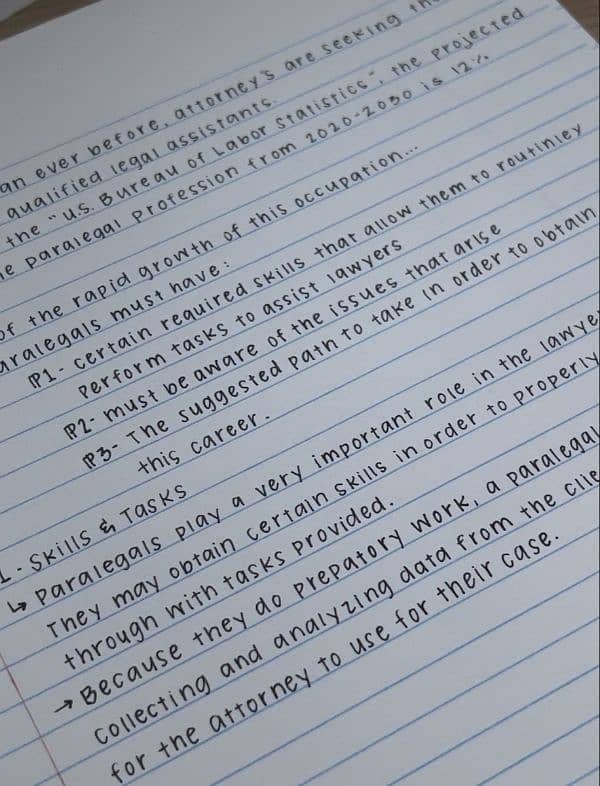 an ever before, attorney's are seeking
qualified legal assistants.
the "U.S. Bureau of Labor Statistics", the projected
paralegal profession from 2020-2030 is 12%.
of the rapid growth of this occupation...
aralegals must have:
P1- certain required skills that allow them to routinley
perform tasks to assist lawyers
P2- must be aware of the issues that arise
P3- The suggested path to take in order to obtain
this career.
1.- Skills & Tasks
↳ Paralegals play a very important role in the lawye
They may obtain certain skills in order to properly
through with tasks provided.
→ Because they do prepatory work, a paralegal
collecting and analyzing data from the clie
for the attorney to use for their case.